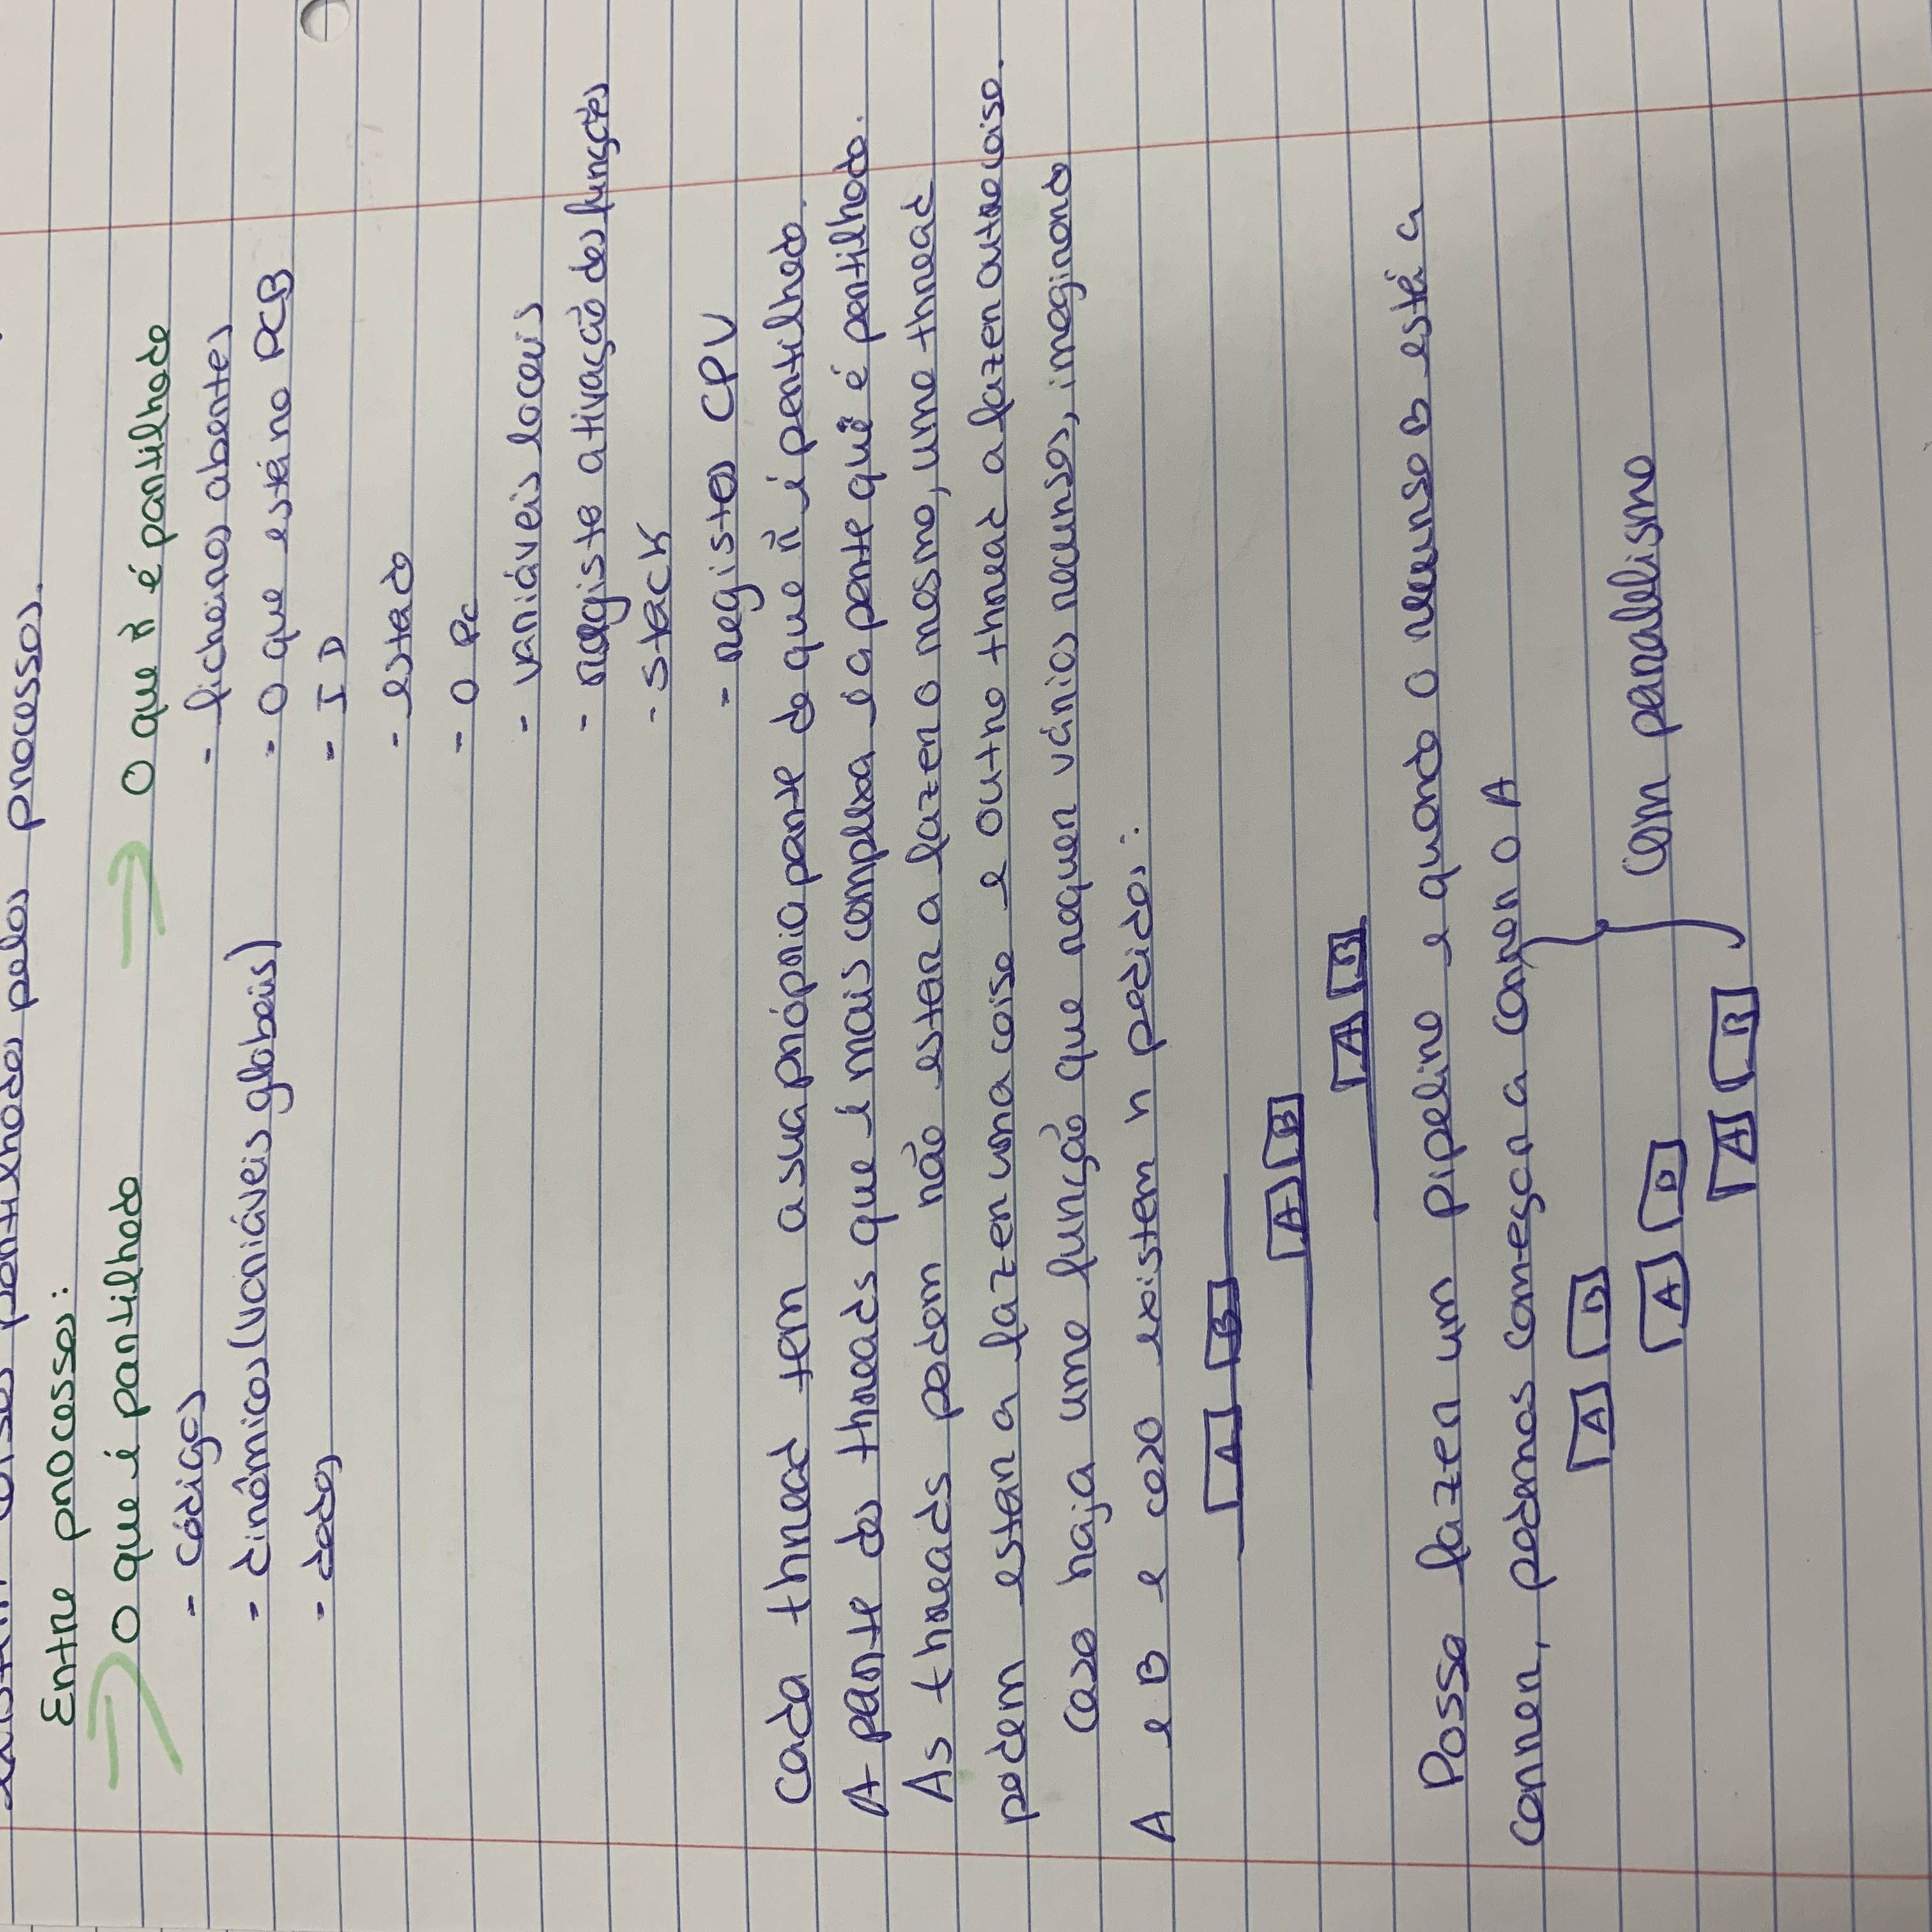 existem coisas partilhadas pelos processos.
Entre processos:
O que é partilhado
- códigos
- dinâmicos (variáveis globais)
- dados
O que ñ é partilhado
- ficheiros abertos
- O que está no PCB
- ID
- estado
- O PC
- variáveis locais
- registo ativação das funções
- stack
- registos CPU
Cada thread tem a sua própria parte do que ñ é partilhado.
A parte das threads que é mais complexa é a parte que é partilhado.
As threads podem não estar a fazer o mesmo, uma thread
podem estar a fazer uma coisa e outra thread a fazer outra coisa.
Caso haja uma função que requer vários recursos, imaginando
A e B e caso existem n pedidos:
A B
A B
A B
Posso fazer um pipeline e quando o recurso B está a
correr, podemos começar a correr o A
A B
A B
A B
com paralelismo